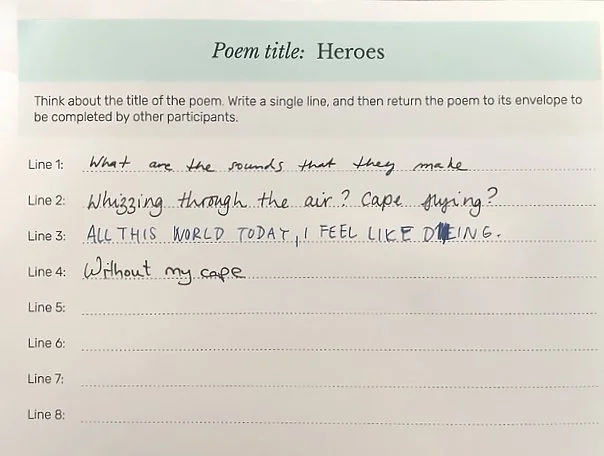 Poem title: Heroes
Think about the title of the poem. Write a single line, and then return the poem to its envelope to
be completed by other participants.
Line 1: What are the sounds that they make
Line 2: Whizzing through the air? Cape flying?
Line 3: ALL THIS WORLD TODAY, I FEEL LIKE DYEING.
Line 4: Without my cape
Line 5:
Line 6:
Line 7:
Line 8: